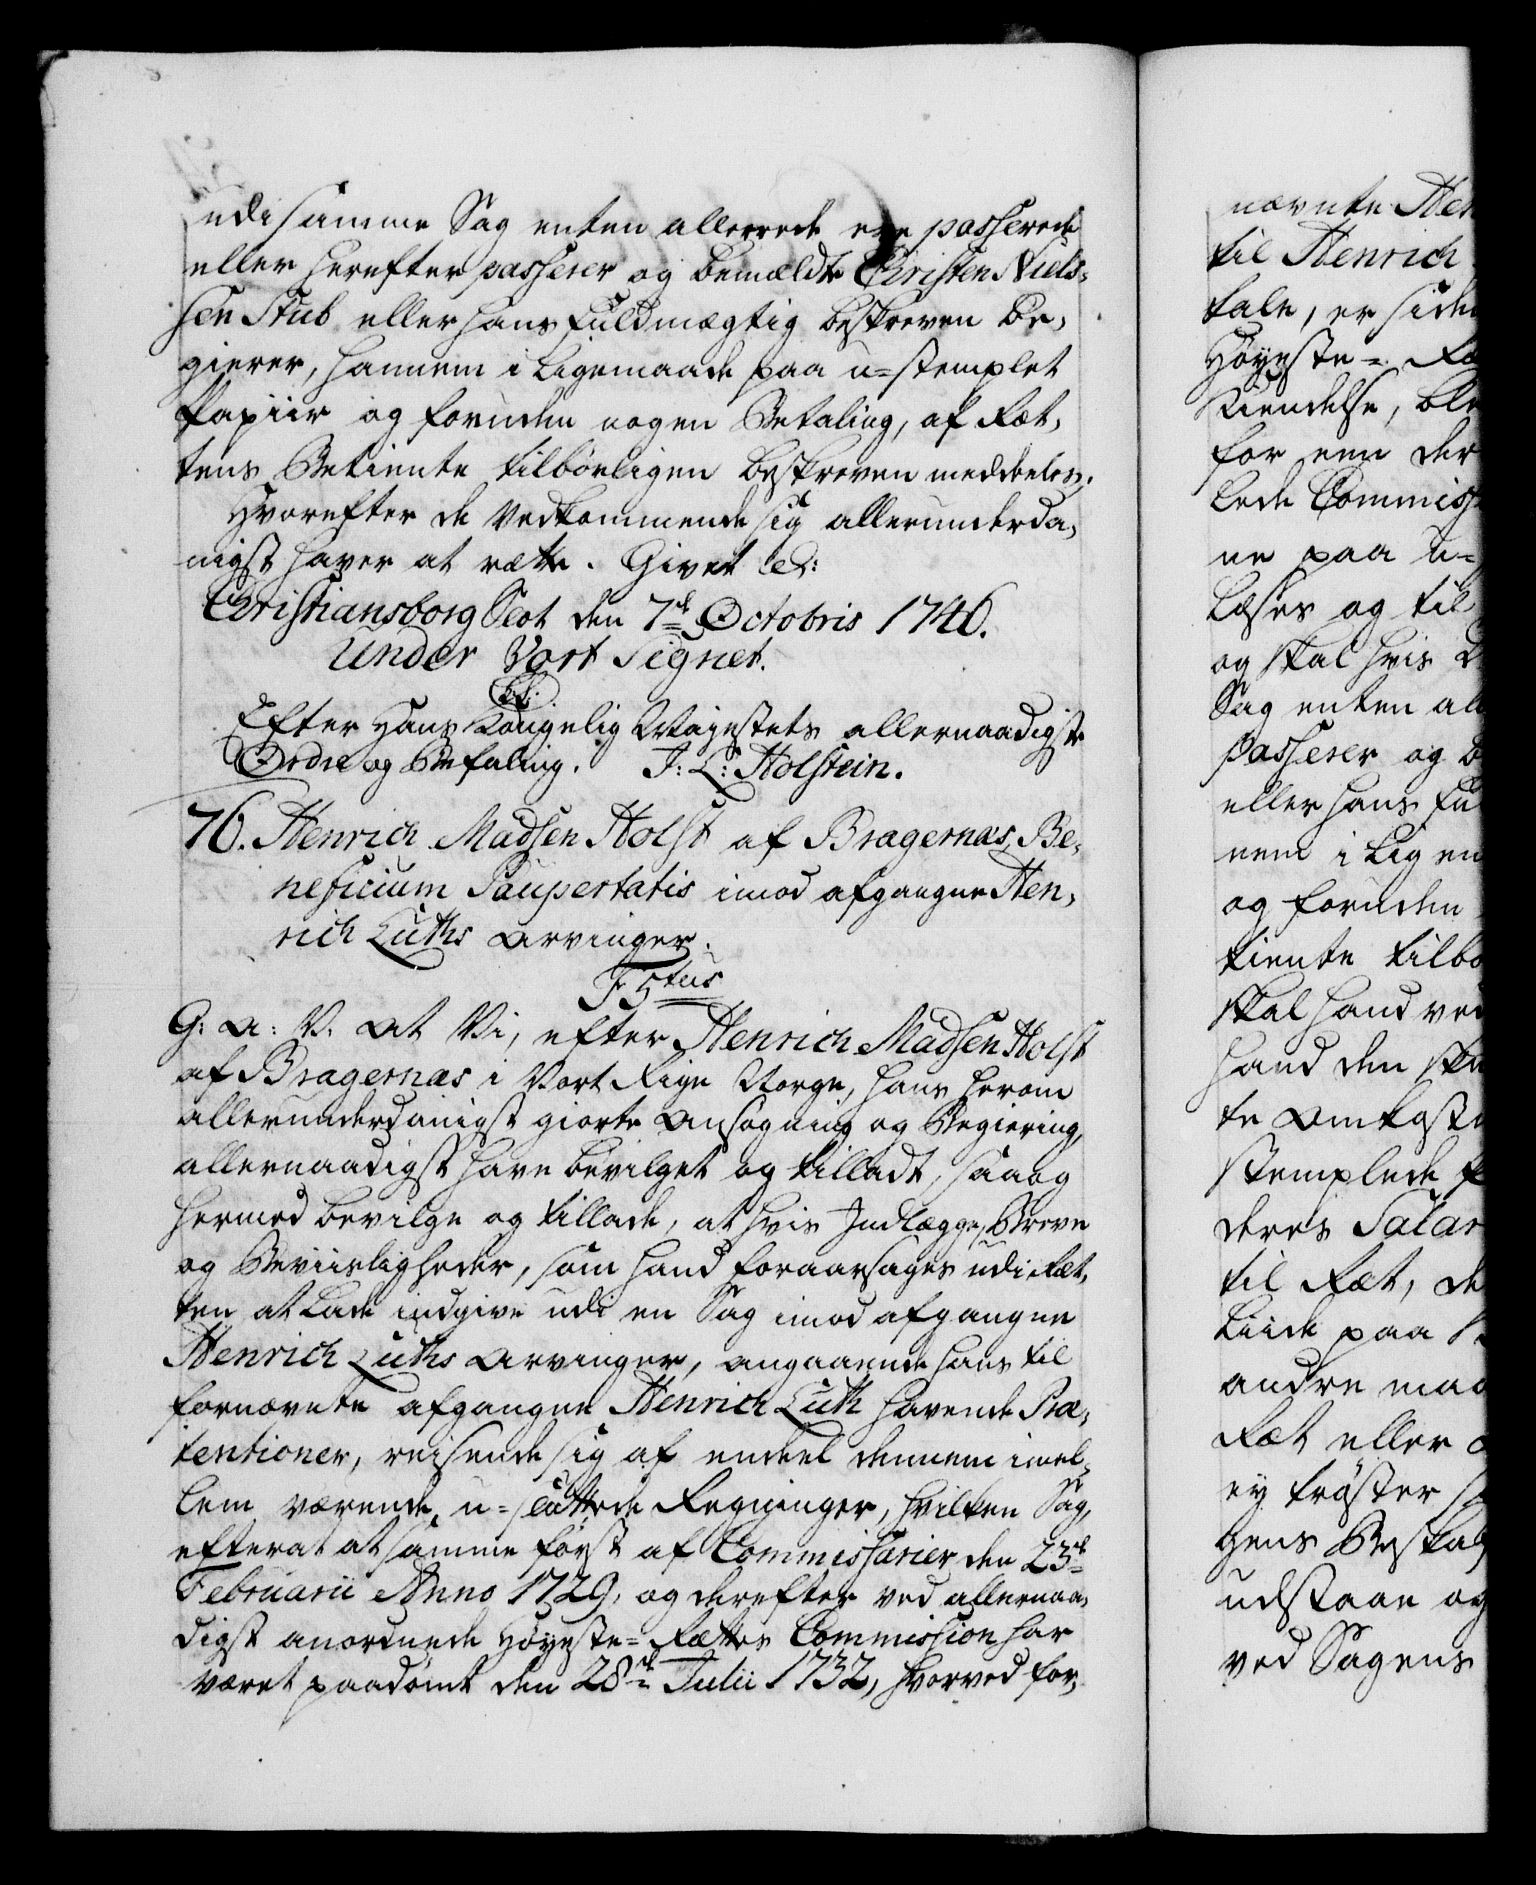 udi samme Sag enten allerrede ere passerede
eller herefter passerer og bemældte Christen Niels-
sen Stub eller hans Fuldmægtig beskreven be-
gierer, hannem i Ligemaade paa u-stemplet
Papiir og foruden nogen Betaling, af Ret-
tens Betiente tilbørligen beskreven meddeeles.
Hvorefter de Vedkommende sig allerunderda-
nigst haver at rætte. Givet &c:
Christiansborg Slot den 7de Octobris 1746.
Under Vort Signet.
Efter Hans Kongelig Majestets allernaadigste
Ordre og Befaling. J: L: Holstein.
76. Henrich Madsen Holst af Bragernæs, Be-
neficium Paupertatis imod afgangne Hen-
rich Luths Arvinger.
F 5tus
G: A: V. At Vi, efter Henrich Madsen Holst
af Bragernæs i Vort Rige Norge, hans herom
allerunderdanigst giorte Ansøgning og Begiering,
allernaadigst have bevilget og tilladt, saa og
hermed bevilge og tillade, at hvis Indlægge, Breve
og Beviisligheder, som hand foraarsages udi Ret-
ten at lade indgive udi en Sag imod afgangne
Henrich Luths Arvinger, angaaende hans til
fornævnte afgangne Henrich Luth havende Præ-
tentioner, reisende sig af endeel dennem imel-
lem værende u-sluttede Regninger, hvilken Sag,
efterat at samme først af Commissarier den 23de
Februarii Anno 1729, og derefter ved allernaa-
digst anordnede Høyeste-Rettes Commission har
været paadømt den 28de Julii 1732, hvorved for-
nævnte Hen
til Henrich
tale, er siden
Høyeste-Ræ
Kiendelse, ble
for een der
lede Commiss
ne paa u-
læses og til
og skal hvis
Sag enten al
passerer og b
eller hans Ful
nem i Ligem
og foruden
tiente tilbø
skal hand ved
hand den
te Omkost
stemplede P
deres Salar
til Ret, de
liide paa
andre maa
Ret eller
ey trøster
gens Beskaf
udstaae og
ved Sagens